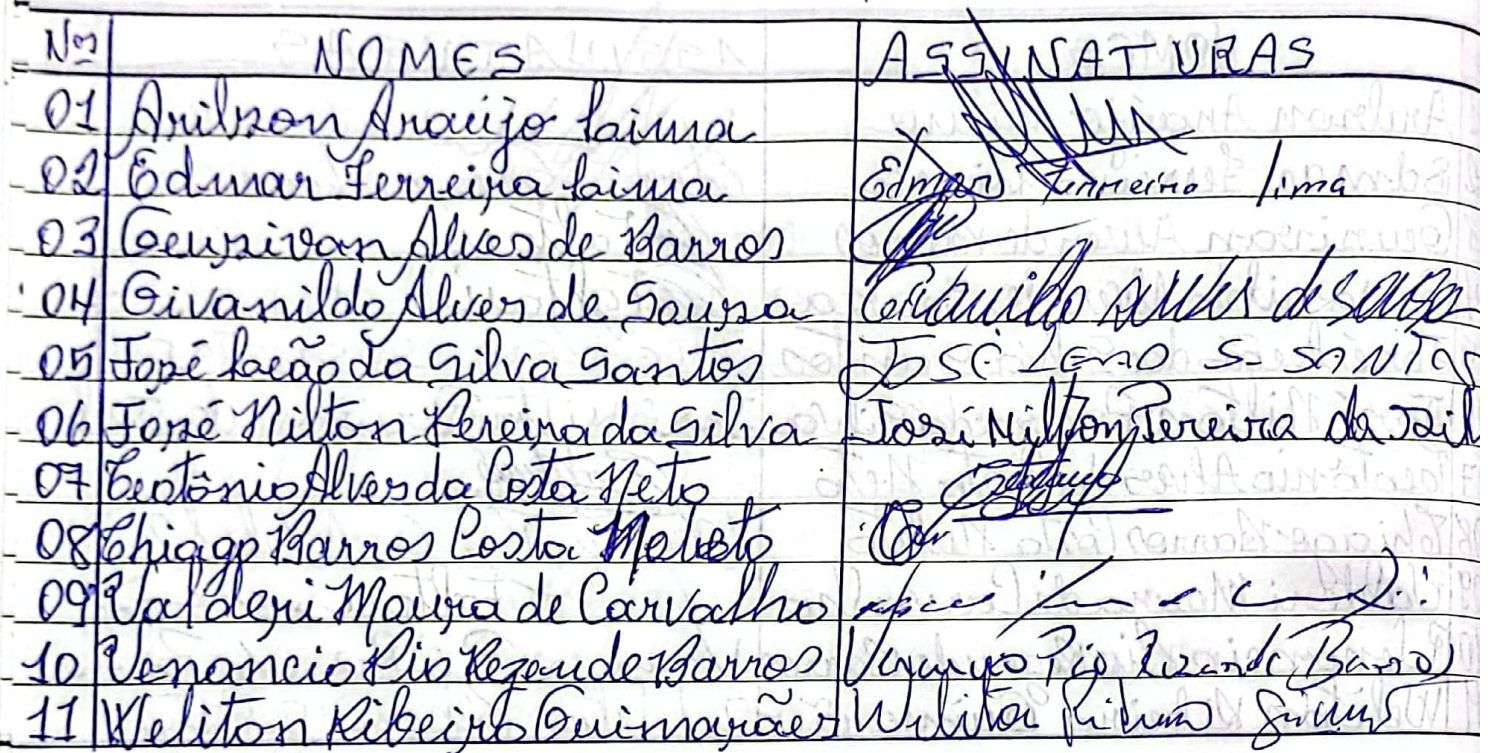 Nº NOMES ASSINATURAS
01 Arilson Araújo Lima
02 Edmar Ferreira Lima Edmar Ferreira lima
03 Geurivan Alves de Barros
04 Givanildo Alves de Souza Givanildo Alves de Souza
05 José Leão da Silva Santos JOSÉ LEÃO S. SANTOS
06 José Nilton Pereira da Silva José Nilton Pereira da Sil
07 Teotônio Alves da Costa Neto
08 Thiago Barros Costa
09 Valderi Moura de Carvalho
10 Venancio Pio Rezende Barros Venancio Pio Rezende Barros
11 Weliton Ribeiro Guimarães Weliton Ribeiro